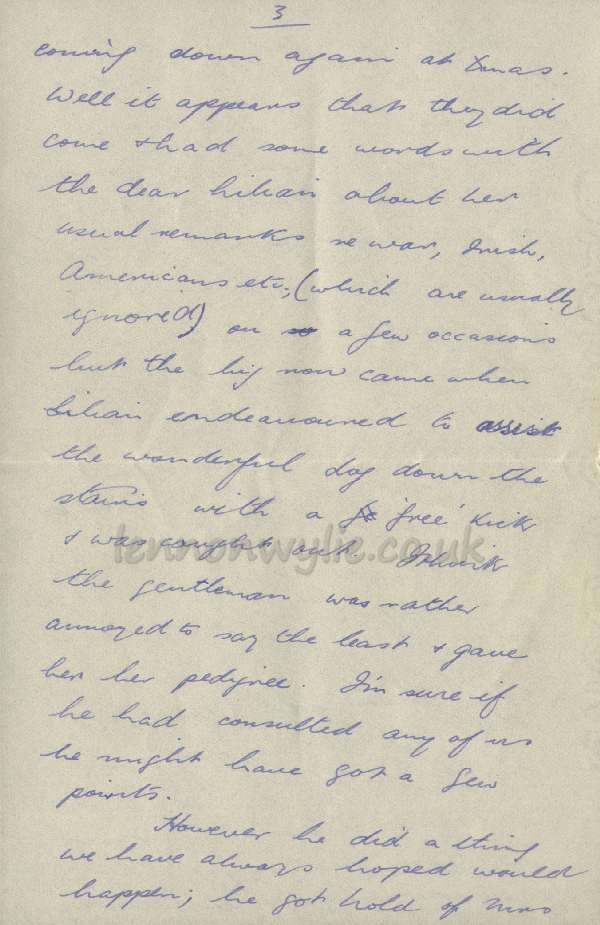 3
coming down again at Xmas.
Well it appears that they did
come & had some words with
the dear Lilian about her
usual remarks re war, Irish,
Americans etc; (which are usually
ignored) on so a few occasions
but the big row came when
Lilian endeavoured to assist
the wonderful dog down the
stairs with a 'free' kick
& was caught out. I think
the gentleman was rather
annoyed to say the least & gave
her her pedigree. I'm sure if
he had consulted any of us
he might have got a few
points.
However he did a thing
we have always hoped would
happen; he got hold of Mrs
lennonwylie.co.uk